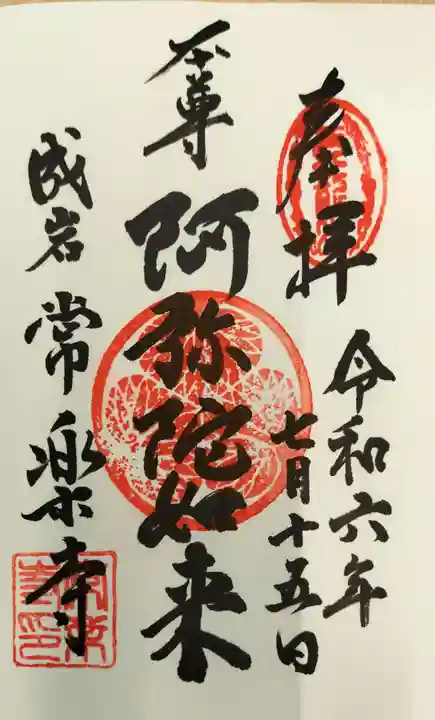 奉拝
令和六年
七月十五日
本尊
阿弥陀如来
成岩 常楽寺